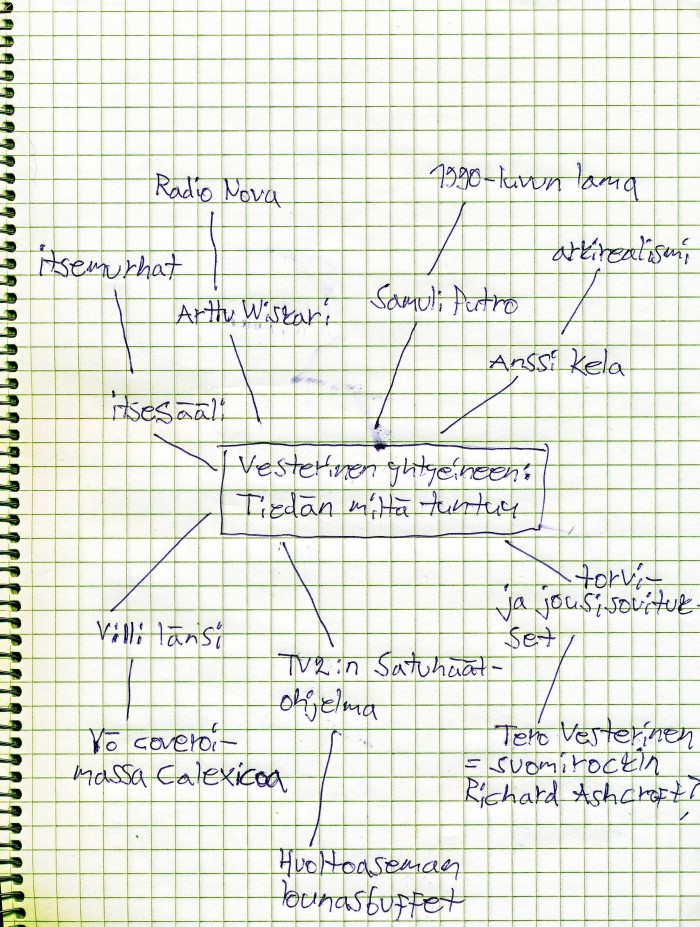 Radio Nova
1990-luvun lama
itsemurhat
arkirealismi
Arttu Wiskari
Samuli Putro
Anssi Kela
itsesääli
Vesterinen yhtyeineen:
Tiedän miltä tuntuu
torvi-
ja jousisovituk-
set
Villi länsi
TV2:n Satuhäät-
ohjelma
Yö coveroi-
massa Calexicoa
Tero Vesterinen
= suomirockin
Richard Ashcroft?
Huoltoaseman
lounasbuffet